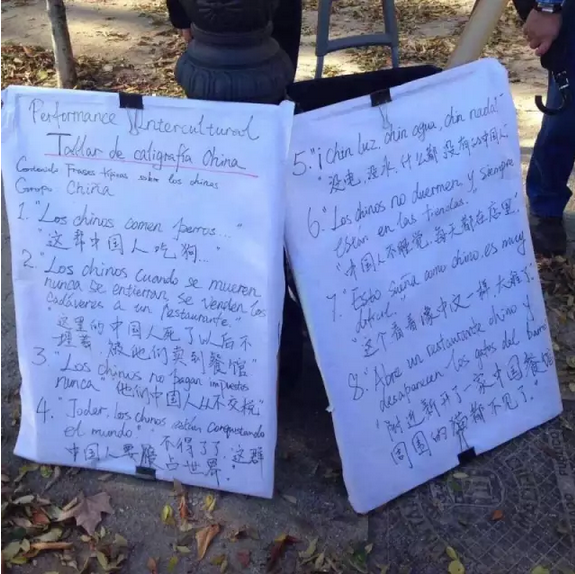 Performance Intercultural
Taller de caligrafía China
Contenido Frases típicas sobre los chinos
China
1. "Los chinos comen perros..."
"这群中国人吃狗..."
2. "Los chinos cuando se mueren
nunca se entierran, se venden los
cadáveres a un restaurante."
"这里的中国人死了以后不
埋葬, 被他们卖到餐馆"
3 "Los chinos no pagan impuestos
nunca" "他们中国人从不交税"
4. "Joder, los chinos están conquistando
el mundo."
中国人要 不得了了, 这群
占世界."
5. "¡Chin luz, chin agua, chin nada!"
"没电, 没水, 什么都没有的中国人."
6. "Los chinos no duermen y siempre
están en las tiendas."
"中国人不睡觉, 每天都在店里"
7. "Esto suena como chino, es muy
difícil."
"这个看着像中文一样, 太难了"
8. "Abre un restaurante chino y
desaparecen los gatos del barrio"
"附近新开了一家中国餐馆
周围的猫都不见了."